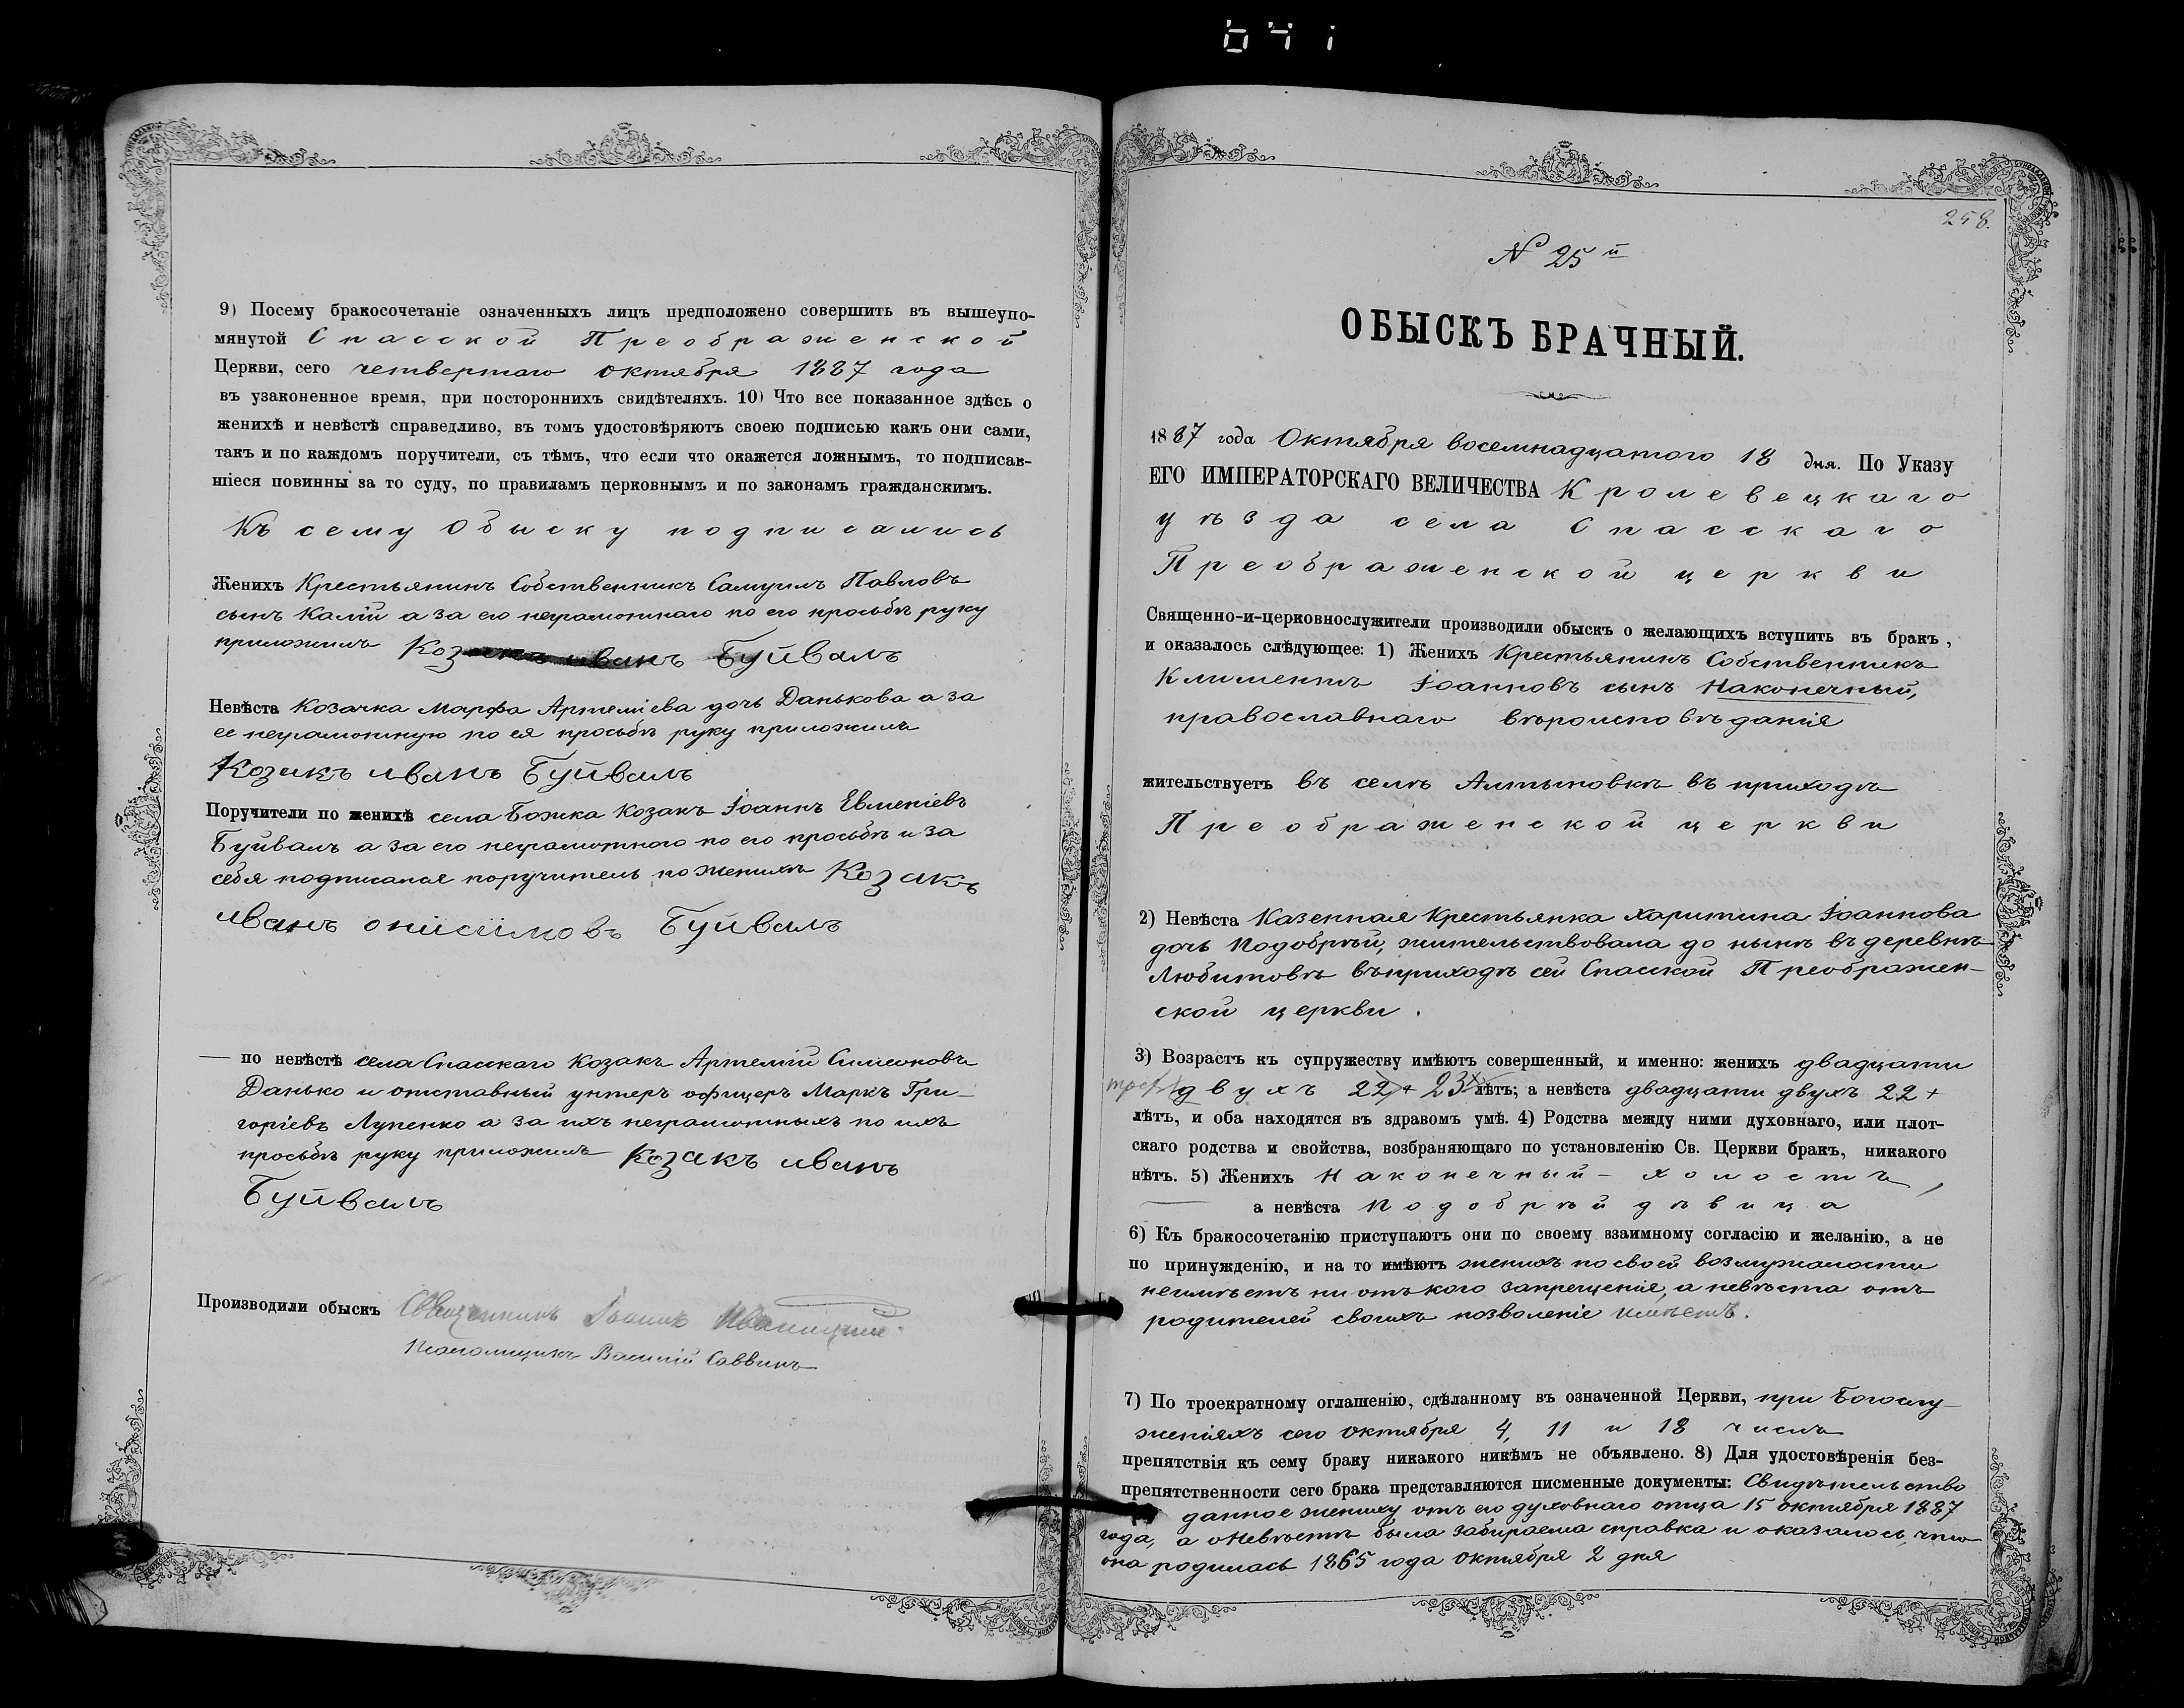 641
9) Посему бракосочетаніе означенныхъ лицъ предположено совершить въ вышеупо-
мянутой Спасской Преображенской
Церкви, сего четвертаго октября 1887 года
въ узаконенное время, при постороннихъ свидѣтеляхъ. 10) Что все показанное здѣсь о
женихѣ и невѣстѣ справедливо, въ томъ удостовѣряютъ своею подписью какъ они сами,
такъ и по каждомъ поручители, съ тѣмъ, что если что окажется ложнымъ, то подписав-
шіеся повинны за то суду, по правиламъ церковнымъ и по законамъ гражданскимъ.
Къ сему Обыску подписались
Женихъ Крестьянинъ Собственникъ Самуилъ Павловъ
сынъ Калій а за его неграмотнаго по его просьбѣ руку
приложилъ Козакъ иванъ Буйвалъ
Невѣста Козачка Марфа Артеміева дочь Данькова а за
ее неграмотную по ея просьбѣ руку приложилъ
Козакъ иванъ Буйвалъ
Поручители по женихѣ села Божка Козакъ Іоаннъ Евменіевъ
Буйвалъ а за его неграмотного по его просьбѣ и за
себя подписался поручитель по женихѣ Козакъ
иванъ Буйвалъ
— по невѣстѣ села Спасскаго Козакъ Артемій Симеоновъ
Данько и отставный унтеръ офицеръ Маркъ Гри-
горіевъ Лупенко а за ихъ неграмотныхъ по ихъ
просьбѣ руку приложилъ Козакъ иванъ
Буйвалъ
Производили обыскъ Священникъ Іоаннъ Иваницкій
Псаломщикъ Василій Саввинъ
258.
N 25й
ОБЫСКЪ БРАЧНЫЙ.
1887 года Октября восемнадцатого 18 дня. По Указу
ЕГО ИМПЕРАТОРСКАГО ВЕЛИЧЕСТВА Кролевецкаго
уѣзда села Спасскаго
Преображенской церкви
Священно-и-церковнослужители производили обыскъ о желающихъ вступить въ бракъ,
и оказалось слѣдующее: 1) Женихъ Крестьянинъ Собственникъ
Климентъ Іоанновъ сынъ Наконечный,
православнаго вѣроисповѣданія
жительствуетъ въ селѣ Алтыновкѣ въ приходѣ
Преображенской церкви
2) Невѣста Казенная Крестьянка Харитина Іоаннова
дочь Подобрѣй, жительствовала до нынѣ въ деревнѣ
Любитовѣ въ приходѣ сей Спасской Преображен-
ской церкви.
3) Возрастъ къ супружеству имѣютъ совершенный, и именно: женихъ двадцати
трех двухъ 22 + 23 лѣтъ; а невѣста двадцати двухъ 22 +
лѣтъ, и оба находятся въ здравомъ умѣ. 4) Родства между ними духовнаго, или плот-
скаго родства и свойства, возбраняющаго по установленію Св. Церкви бракъ, никакого
нѣтъ. 5) Женихъ Наконечный – холостъ,
а невѣста Подобрѣй дѣвица
6) Къ бракосочетанію приступаютъ они по своему взаимному согласію и желанію, а не
по принужденію, и на то имѣютъ женихъ по своей возмужалости
неимѣетъ ни отъ кого запрещенія, а невѣста отъ
родителей своихъ позволеніе имѣетъ.
7) По троекратному оглашенію, сдѣланному въ означенной Церкви, при Богослу-
женіяхъ сего октября 4, 11 и 18 числъ
препятствія къ сему браку никакого никѣмъ не объявлено. 8) Для удостовѣренія без-
препятственности сего брака представляются писменные документы: Свидѣтельство
данное жениху отъ его духовнаго отца 15 октября 1887
года, а о Невѣстѣ была забираема справка и оказалось, что
она родилась 1865 года октября 2 дня